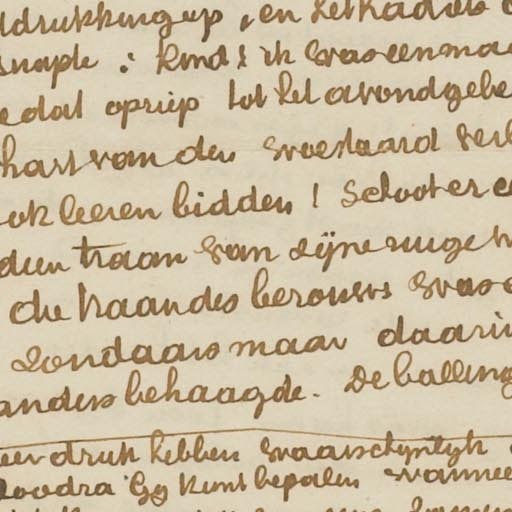 drukking up, en het kadots
snapte : kind! ik was eenmaa
edat opriep tot het avondgebe
hart van den woestaard verb
ook leeren bidden! Schoot er e
den traan van zijne ruige w
die traan des berouws was
Zondaars maar daarin
anders behaagde. De balling
eer druk hebben waarschijnlijk
Zoodra Gy kunt bepalen wannee